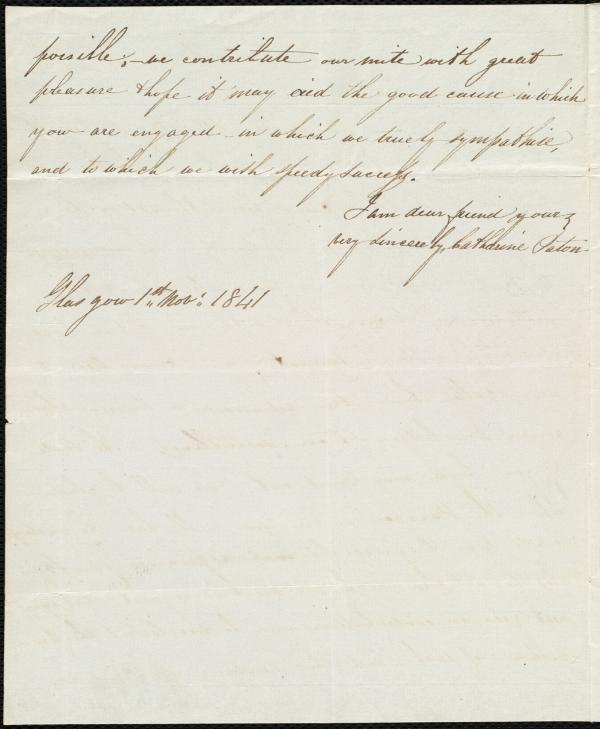 possible; – we contribute our mite with great
pleasure & hope it may aid the good cause in which
you are engaged – in which we truely sympathise,
and to which we wish speedy success.
I am dear friend yours
very sincerely, Catherine Paton
Glasgow 1st Novr. 1841